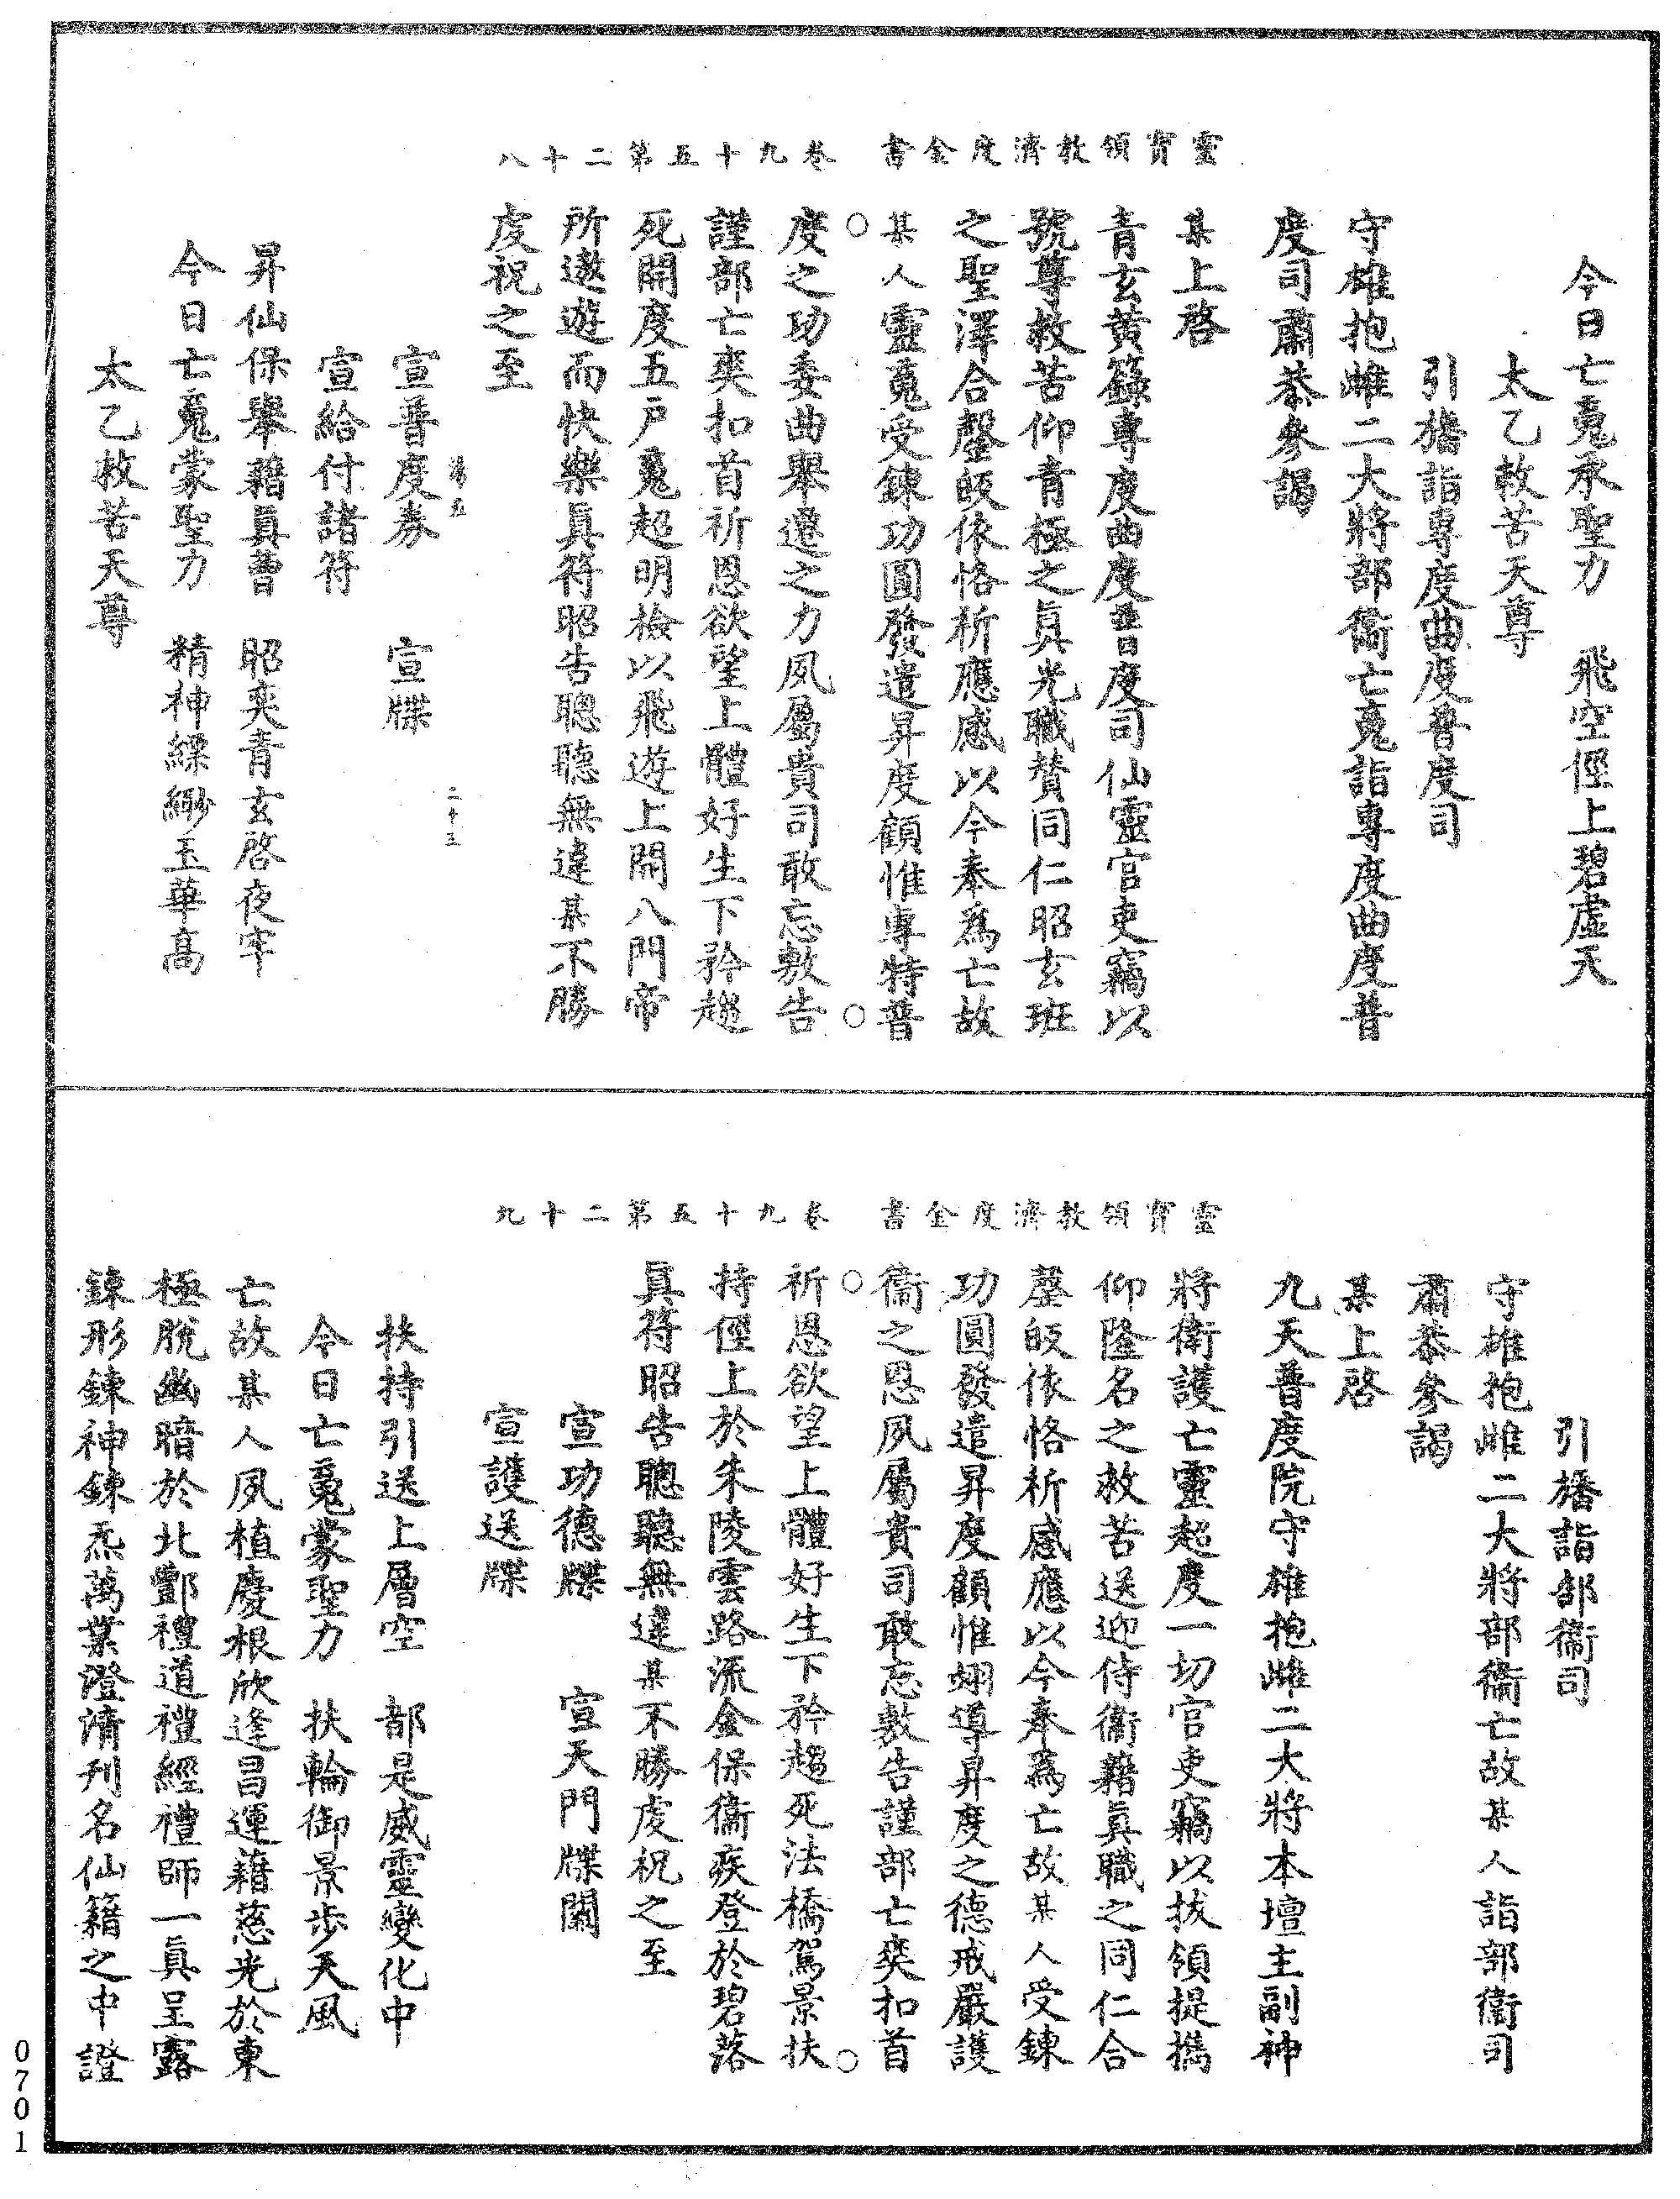 靈寶領教濟度金書　卷九十五第二十八
今日亡䰟承聖力　飛空徑上碧虛天
太乙救苦天尊
引旛詣專度曲度普度司
守雄抱雌二大將部衛亡䰟詣專度曲度普
度司肅恭參謁
某上啓
青玄黃籙專度曲度普度司仙靈官吏竊以
號尊救苦仰青極之眞光職賛同仁昭玄班
之聖澤合罄皈依恪祈應感以今奉爲亡故
某人靈䰟受鍊功圓發遣昇度顧惟專特普
度之功委曲舉遷之力夙屬貴司敢忘敷告
謹部亡爽扣首祈恩欲望上體好生下矜趨
死開度五戶䰟超明檢以飛遊上開八門帝
所遨遊而快樂眞符昭告聰聽無違某不勝
虔祝之至
宣普度券　宣牒
宣給付諸符
昇仙保舉藉眞曹　昭爽青玄啓夜牢
今日亡䰟蒙聖力　精神縹緲玉華高
太乙救苦天尊
靈寶領教濟度金書　卷九十五第二十九
引旛詣部衛司
守雄抱雌二大將部衛亡故某人詣部衛司
肅恭參謁
某上啓
九天普度院守雄抱雌二大將本壇主副神
將衛護亡靈超度一切官吏竊以拔領提攜
仰隆名之救苦送迎侍衛藉眞職之同仁合
罄皈依恪祈感應以今奉爲亡故某人受鍊
功圓發遣昇度顧惟翊導昇度之德戒嚴護
衛之恩夙屬貴司敢忘敷告謹部亡爽扣首
祈恩欲望上體好生下矜趨死法橋駕景扶
持徑上於朱陵雲路派金保衛疾登於碧落
眞符昭告聰聽無違某不勝虔祝之至
宣功德牒　宣天門牒關
宣護送牒
扶持引送上層空　部是威靈變化中
今日亡䰟蒙聖力　扶輪御景步天風
亡故某人夙植慶根欣逢昌運藉慈光於東
極脫幽暗於北酆禮道禮經禮師一眞呈露
鍊形鍊神鍊炁萬業澄清刊名仙籍之中證
0701